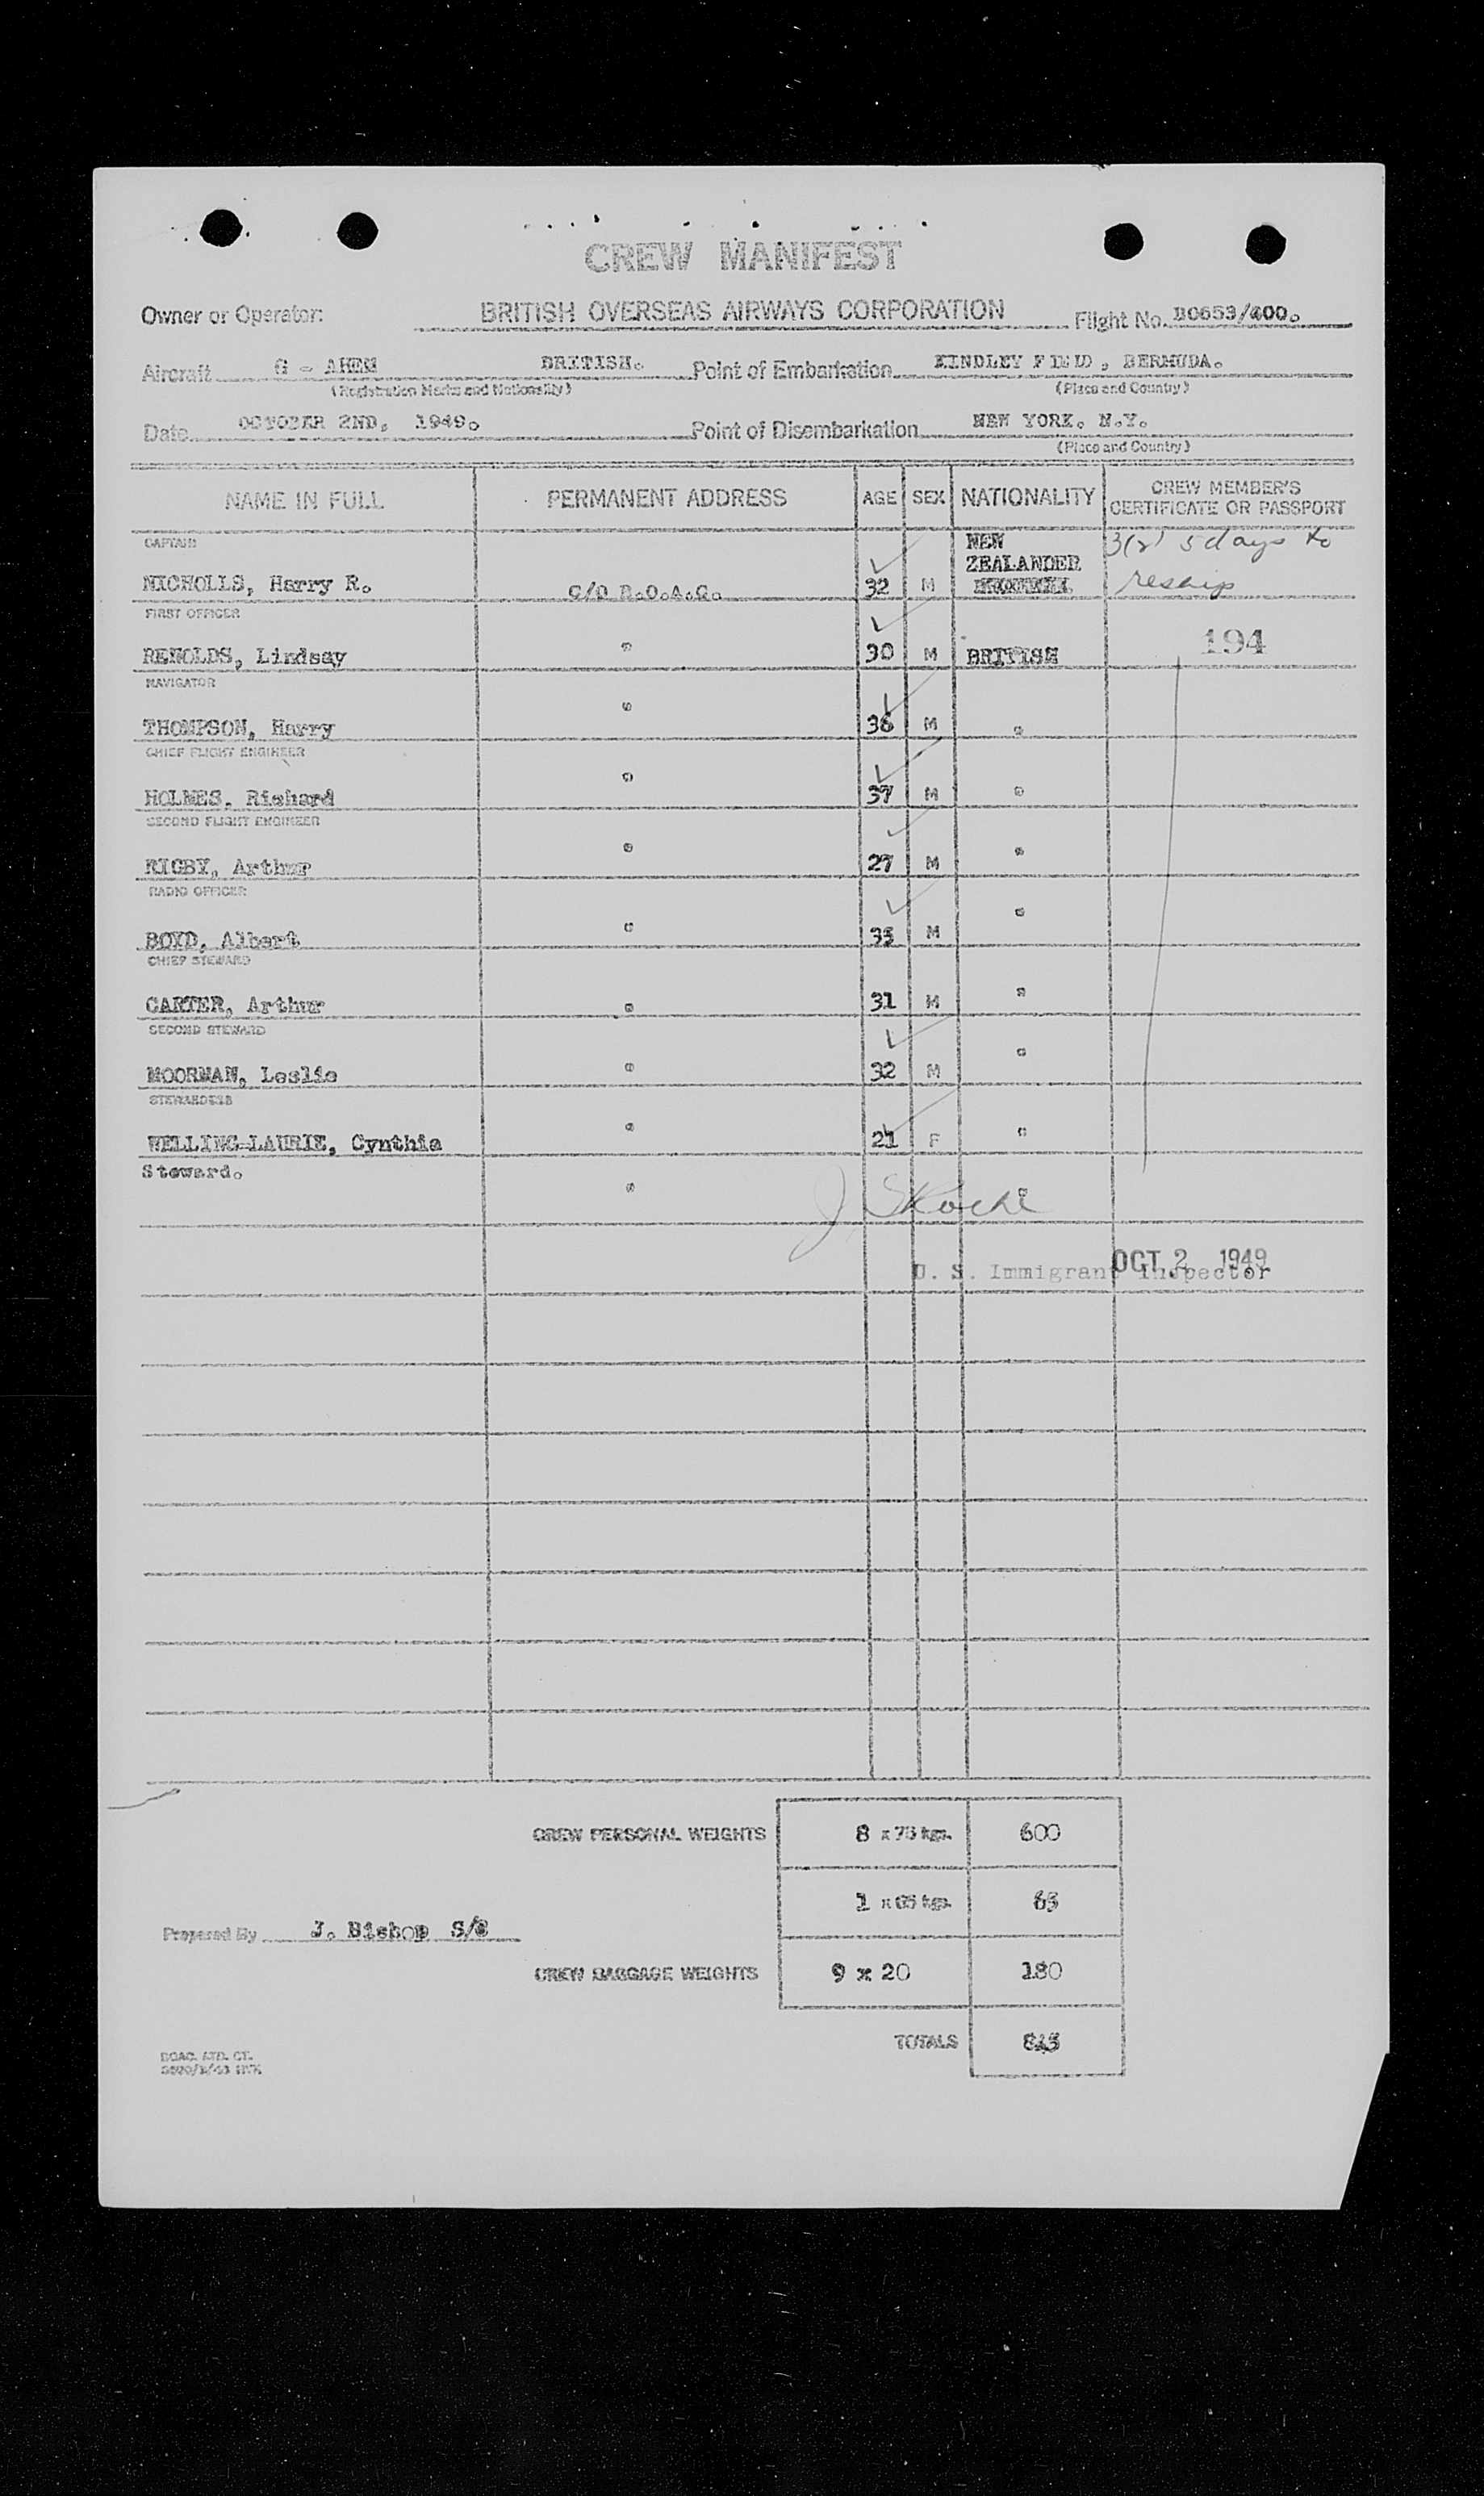 CREW MANIFEST
Owner or Operator: BRITISH OVERSEAS AIRWAYS CORPORATION Flight No. BC653/400.
Aircraft G - AHEM BRITISH. Point of Embarkation KINDLEY FIELD, BERMUDA.
(Registration Marks and Nationality) (Place and Country)
Date OCTOBER 2ND, 1949. Point of Disembarkation NEW YORK. N.Y.
(Place and Country)
NAME IN FULL PERMANENT ADDRESS AGE SEX NATIONALITY CREW MEMBER'S CERTIFICATE OR PASSPORT
CAPTAIN NEW 3(2) 5 days to
ZEALANDER
NICHOLLS, Harry R. C/O B.O.A.C. 32 M reship
FIRST OFFICER
RENOLDS, Lindsay " 30 M BRITISH 194
NAVIGATOR
THOMPSON, Harry " 36 M "
CHIEF FLIGHT ENGINEER
HOLMES. Richard " 37 M "
SECOND FLIGHT ENGINEER
RIGBY, Arthur " 27 M "
RADIO OFFICER
BOYD, Albert " 35 M "
CHIEF STEWARD
CARTER, Arthur " 31 M "
SECOND STEWARD
MOORMAN, Leslie " 32 M "
STEWARDESS
WELLING-LAURIE, Cynthia " 21 F "
Steward. " "
OCT 2 1949
U. S. Immigrant Inspector
CREW PERSONAL WEIGHTS 8 x 75 kgs. 600
1 x 65 kgs. 65
Prepared By J. Bishop
CREW BAGGAGE WEIGHTS 9 x 20 180
TOTALS 845